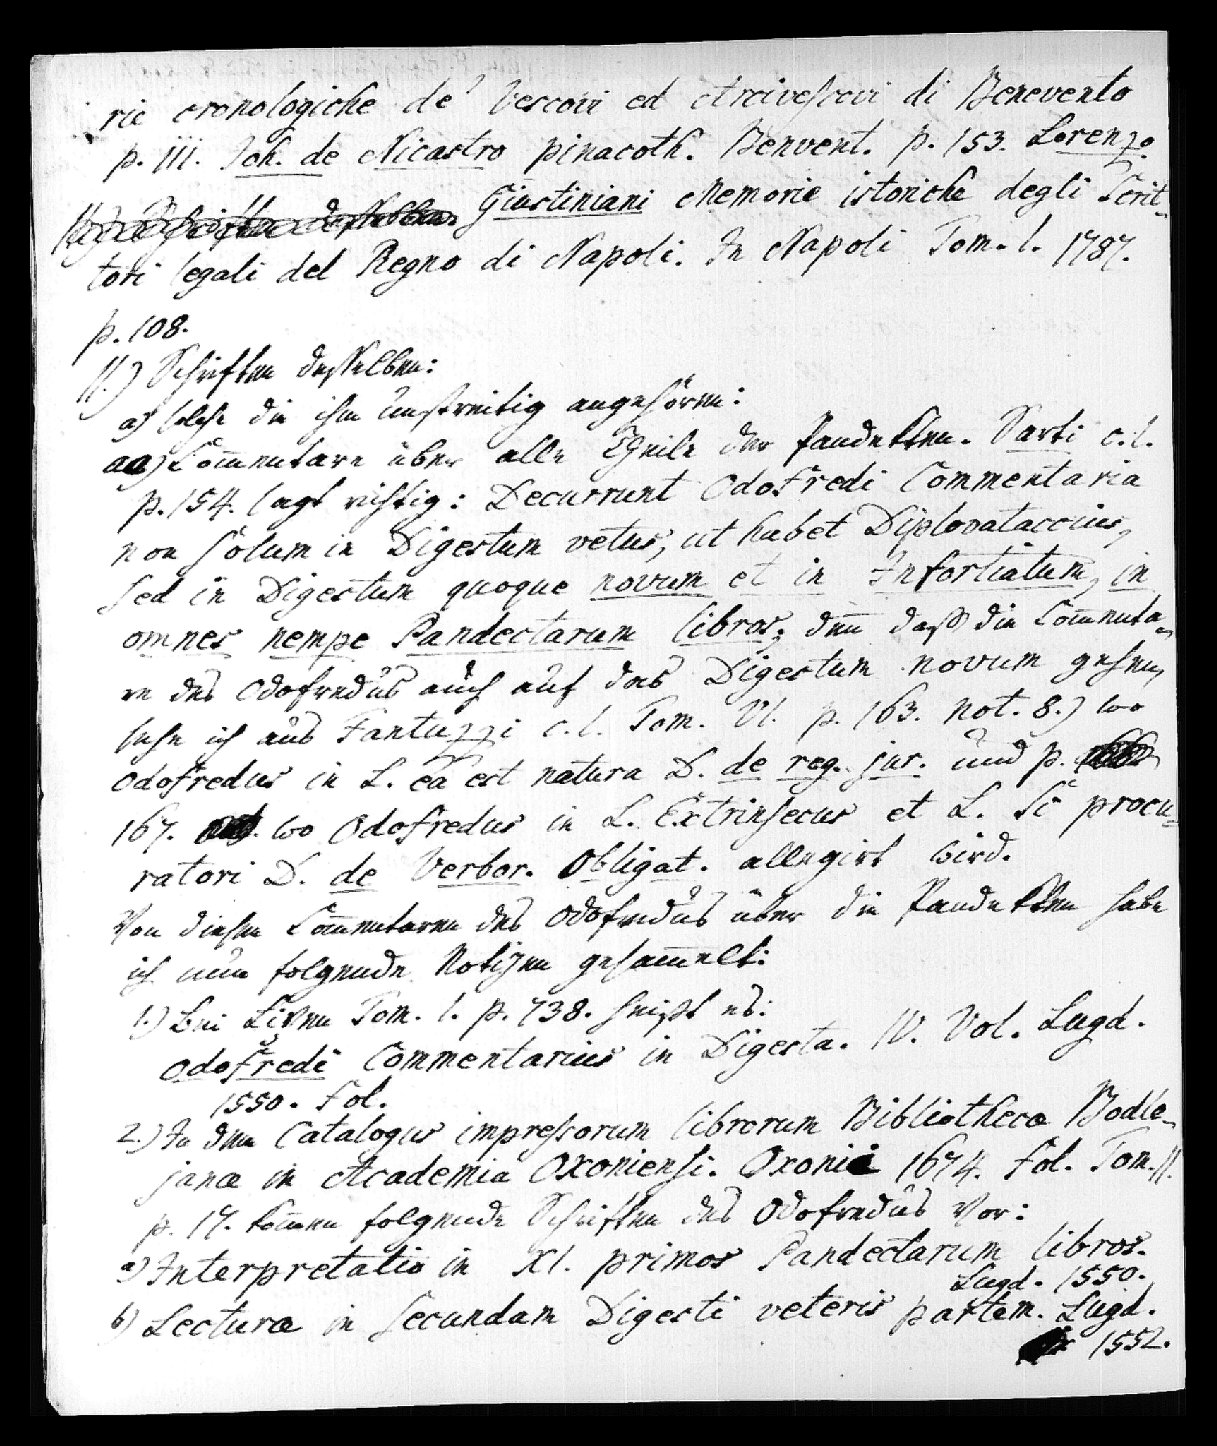 rie cronologiche de' Vescovi ed Arcivescovi di Benevento
p. 111. Joh. de Nicastro pinacoth. Benvent. p. 153. Lorenzo
Giustiniani Memorie istoriche degli Scrit-
tori legali del Regno di Napoli. In Napoli Tom. I. 1787.
p. 108.
II.) Schriften desselben:
a) solche die ihm unstreitig angehören:
aa) Com̅entare über alle Theile der Pandekten. Sarti c. l.
p. 154. sagt richtig: Decurrunt Odofredi Commentaria
non solum in Digestum vetus, ut habet Diplovataccius,
sed in Digestum quoque novum et in Infortiatum, in
omnes nempe Pandectarum libros; den̅ daß die Com̅enta-
re des Odofredus auch auf das Digestum novum gehen,
sehe ich aus Fantuzzi c. l. Tom. VI. p. 163. not. 8.) wo
Odofredus in L. ea est natura D. de reg. jur. und p.
167. wo Odofredus in L. Extrinsecus et L. Si procu-
ratori D. de Verbor. Obligat. allegirt wird.
Von diesen Com̅entaren des Odofredus über die Pandekten habe
ich nun folgende Notizen gesam̅elt:
1.) Bei Lipen Tom. I. p. 738. heißt es:
Odofredi Commentarius in Digesta. IV. Vol. Lugd.
1550. Fol.
2.) In dem Catalogus impressorum librorum Bibliothecæ Bodle-
janæ in Academia Oxoniensi. Oxonii 1674. fol. Tom. II.
p. 17. kom̅en folgende Schriften des Odofredus vor:
a) Interpretatio in XI. primos Pandectarum libros.
Lugd. 1550.
b) Lectura in secundam Digesti veteris partem. Lugd.
1552.